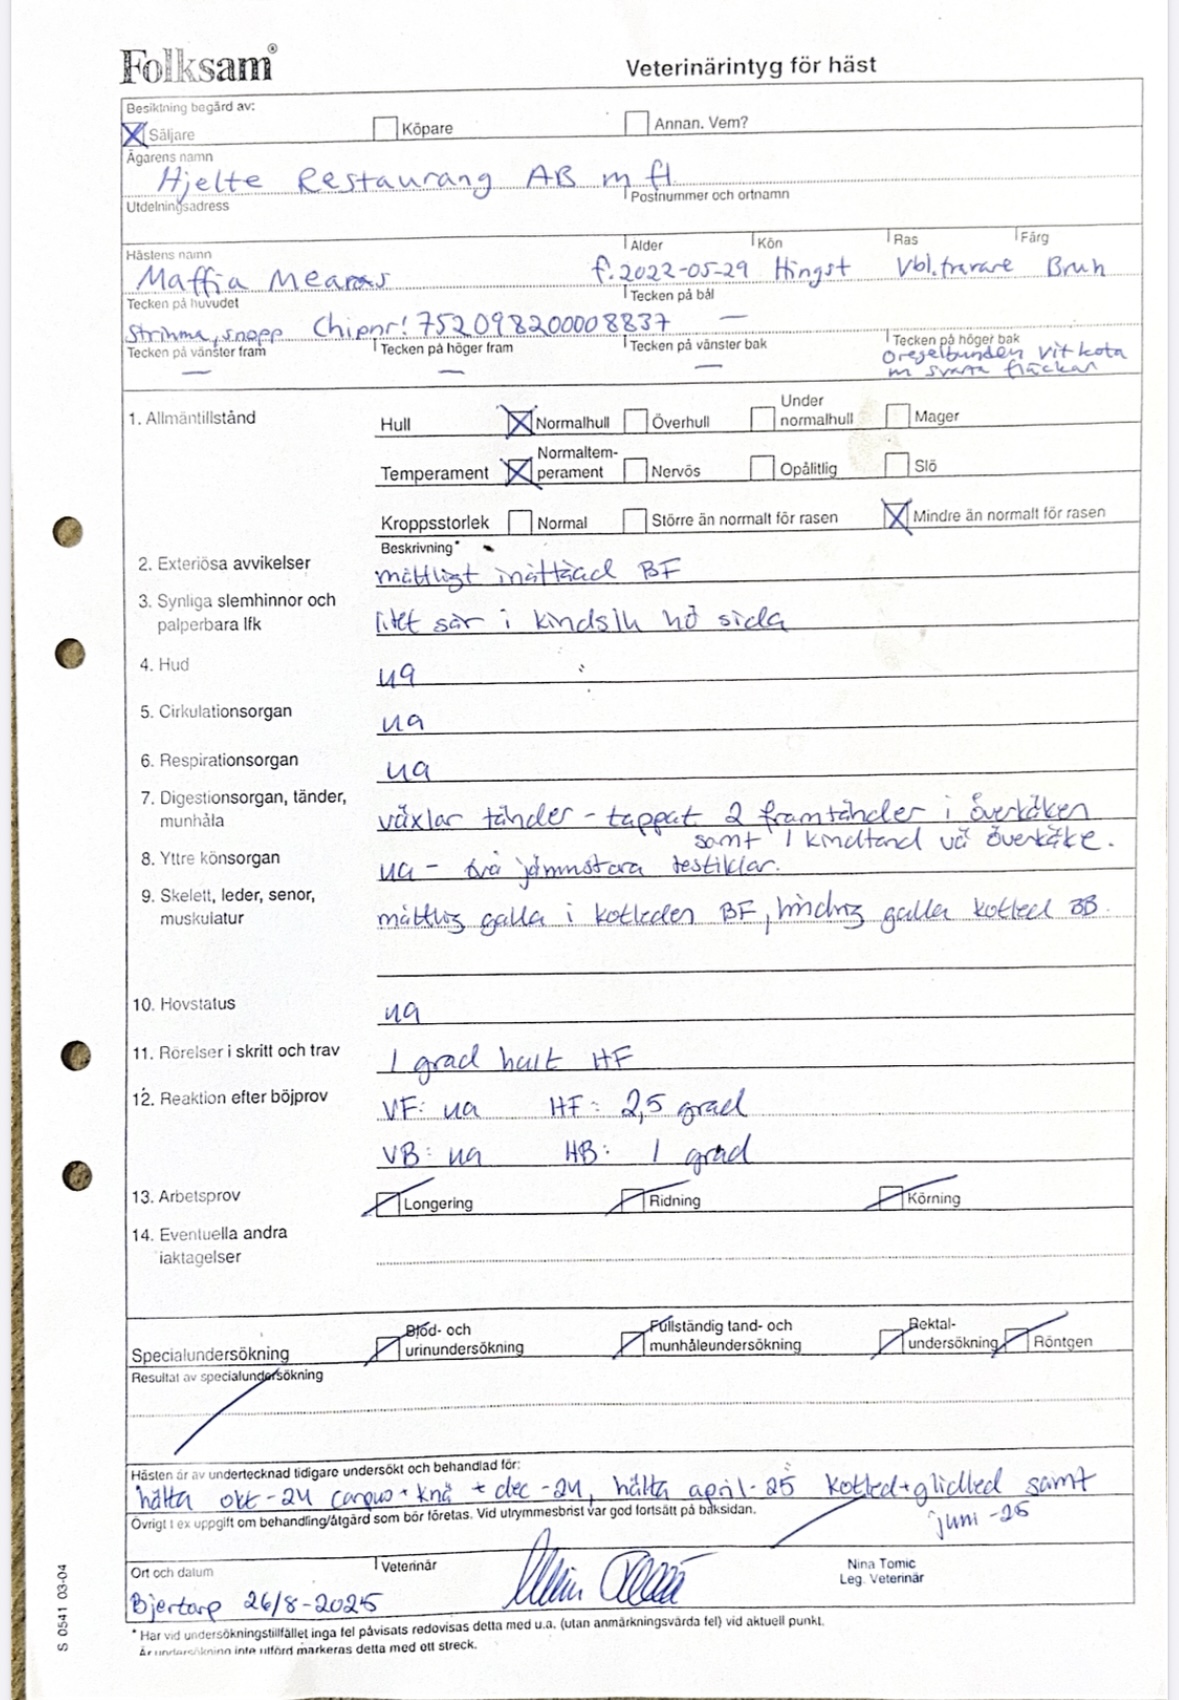 Folksam®
Veterinärintyg för häst
Besiktning begärd av:
Säljare Köpare Annan. Vem?
Ägarens namn
Hjelte Restaurang AB m fl
Utdelningsadress Postnummer och ortnamn
Hästens namn Ålder Kön Ras Färg
Maffia Mearas f. 2022-05-29 Hingst Vbl. travare Brun
Tecken på huvudet Tecken på bål
Strimma, snopp Chipnr: 752098200008837 —
Tecken på vänster fram Tecken på höger fram Tecken på vänster bak Tecken på höger bak
— — — oregelbunden vit kota
m svarta fläckar
1. Allmäntillstånd Hull Normalhull Överhull Under normalhull Mager
Temperament Normaltem-perament Nervös Opålitlig Slö
Kroppsstorlek Normal Större än normalt för rasen Mindre än normalt för rasen
Beskrivning*
2. Exteriösa avvikelser måttligt inåttåad BF
3. Synliga slemhinnor och
palperbara lfk litet sår i kindslh hö sida
4. Hud ua
5. Cirkulationsorgan ua
6. Respirationsorgan ua
7. Digestionsorgan, tänder,
munhåla växlar tänder - tappat 2 framtänder i överkäken
samt 1 kindtand vä överkäke.
8. Yttre könsorgan ua - två jämnstora testiklar.
9. Skelett, leder, senor,
muskulatur måttlig galla i kotleden BF, lindrig galla kotled BB.
10. Hovstatus ua
11. Rörelser i skritt och trav 1 grad halt HF
12. Reaktion efter böjprov VF: ua HF: 2,5 grad
VB: ua HB: 1 grad
13. Arbetsprov Longering Ridning Körning
14. Eventuella andra
iaktagelser
Specialundersökning Blod- och urinundersökning Fullständig tand- och munhåleundersökning Rektal-undersökning Röntgen
Resultat av specialundersökning
Hästen är av undertecknad tidigare undersökt och behandlad för:
hälta okt-24 carpus + knä + dec -24, hälta april-25 kotled + glidled samt
juni -25
Övrigt t ex uppgift om behandling/åtgärd som bör företas. Vid utrymmesbrist var god fortsätt på baksidan.
Ort och datum Veterinär Nina Tomic
Leg. Veterinär
Bjertorp 26/8-2025
* Har vid undersökningstillfället inga fel påvisats redovisas detta med u.a. (utan anmärkningsvärda fel) vid aktuell punkt.
Är undersökning inte utförd markeras detta med ett streck.
S 0541 03-04